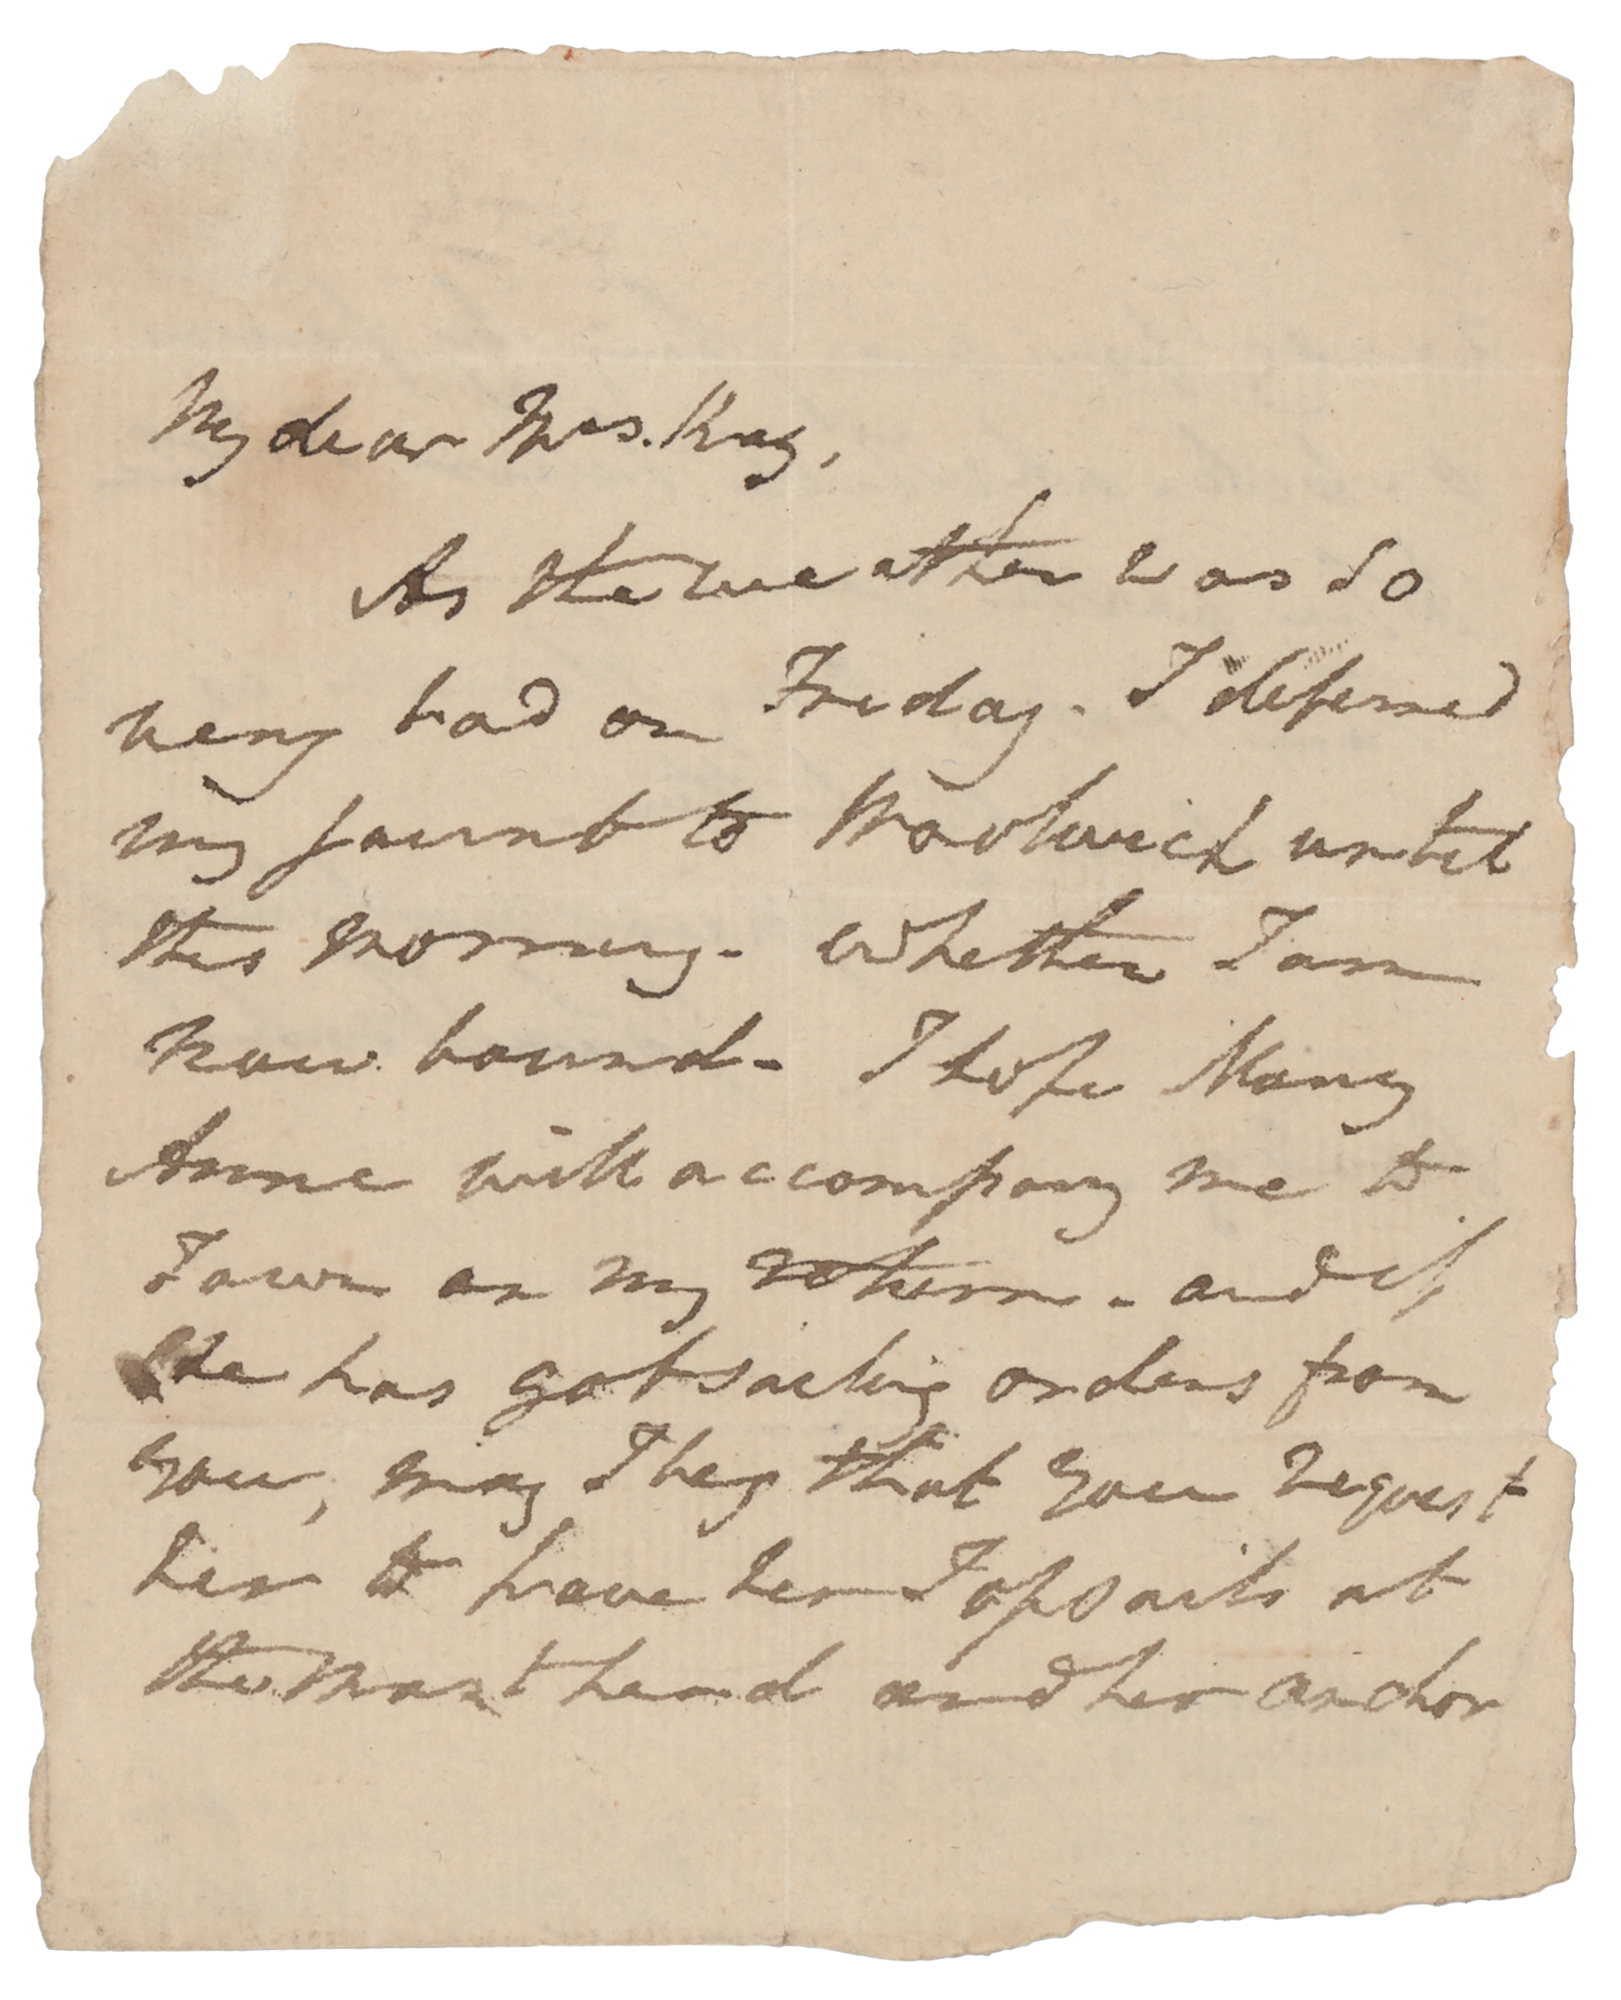 My dear Mrs. Kay,
As the weather was so
very bad on Friday. I deferred
my jaunt to Woolwich until
this morning. Whither I am
now bound. I hope Mary
Anne will accompany me to
Town on my return. and if
she has got sailing orders from
you, may I beg that you request
her to have her Topsails at
the Mast head and her anchor